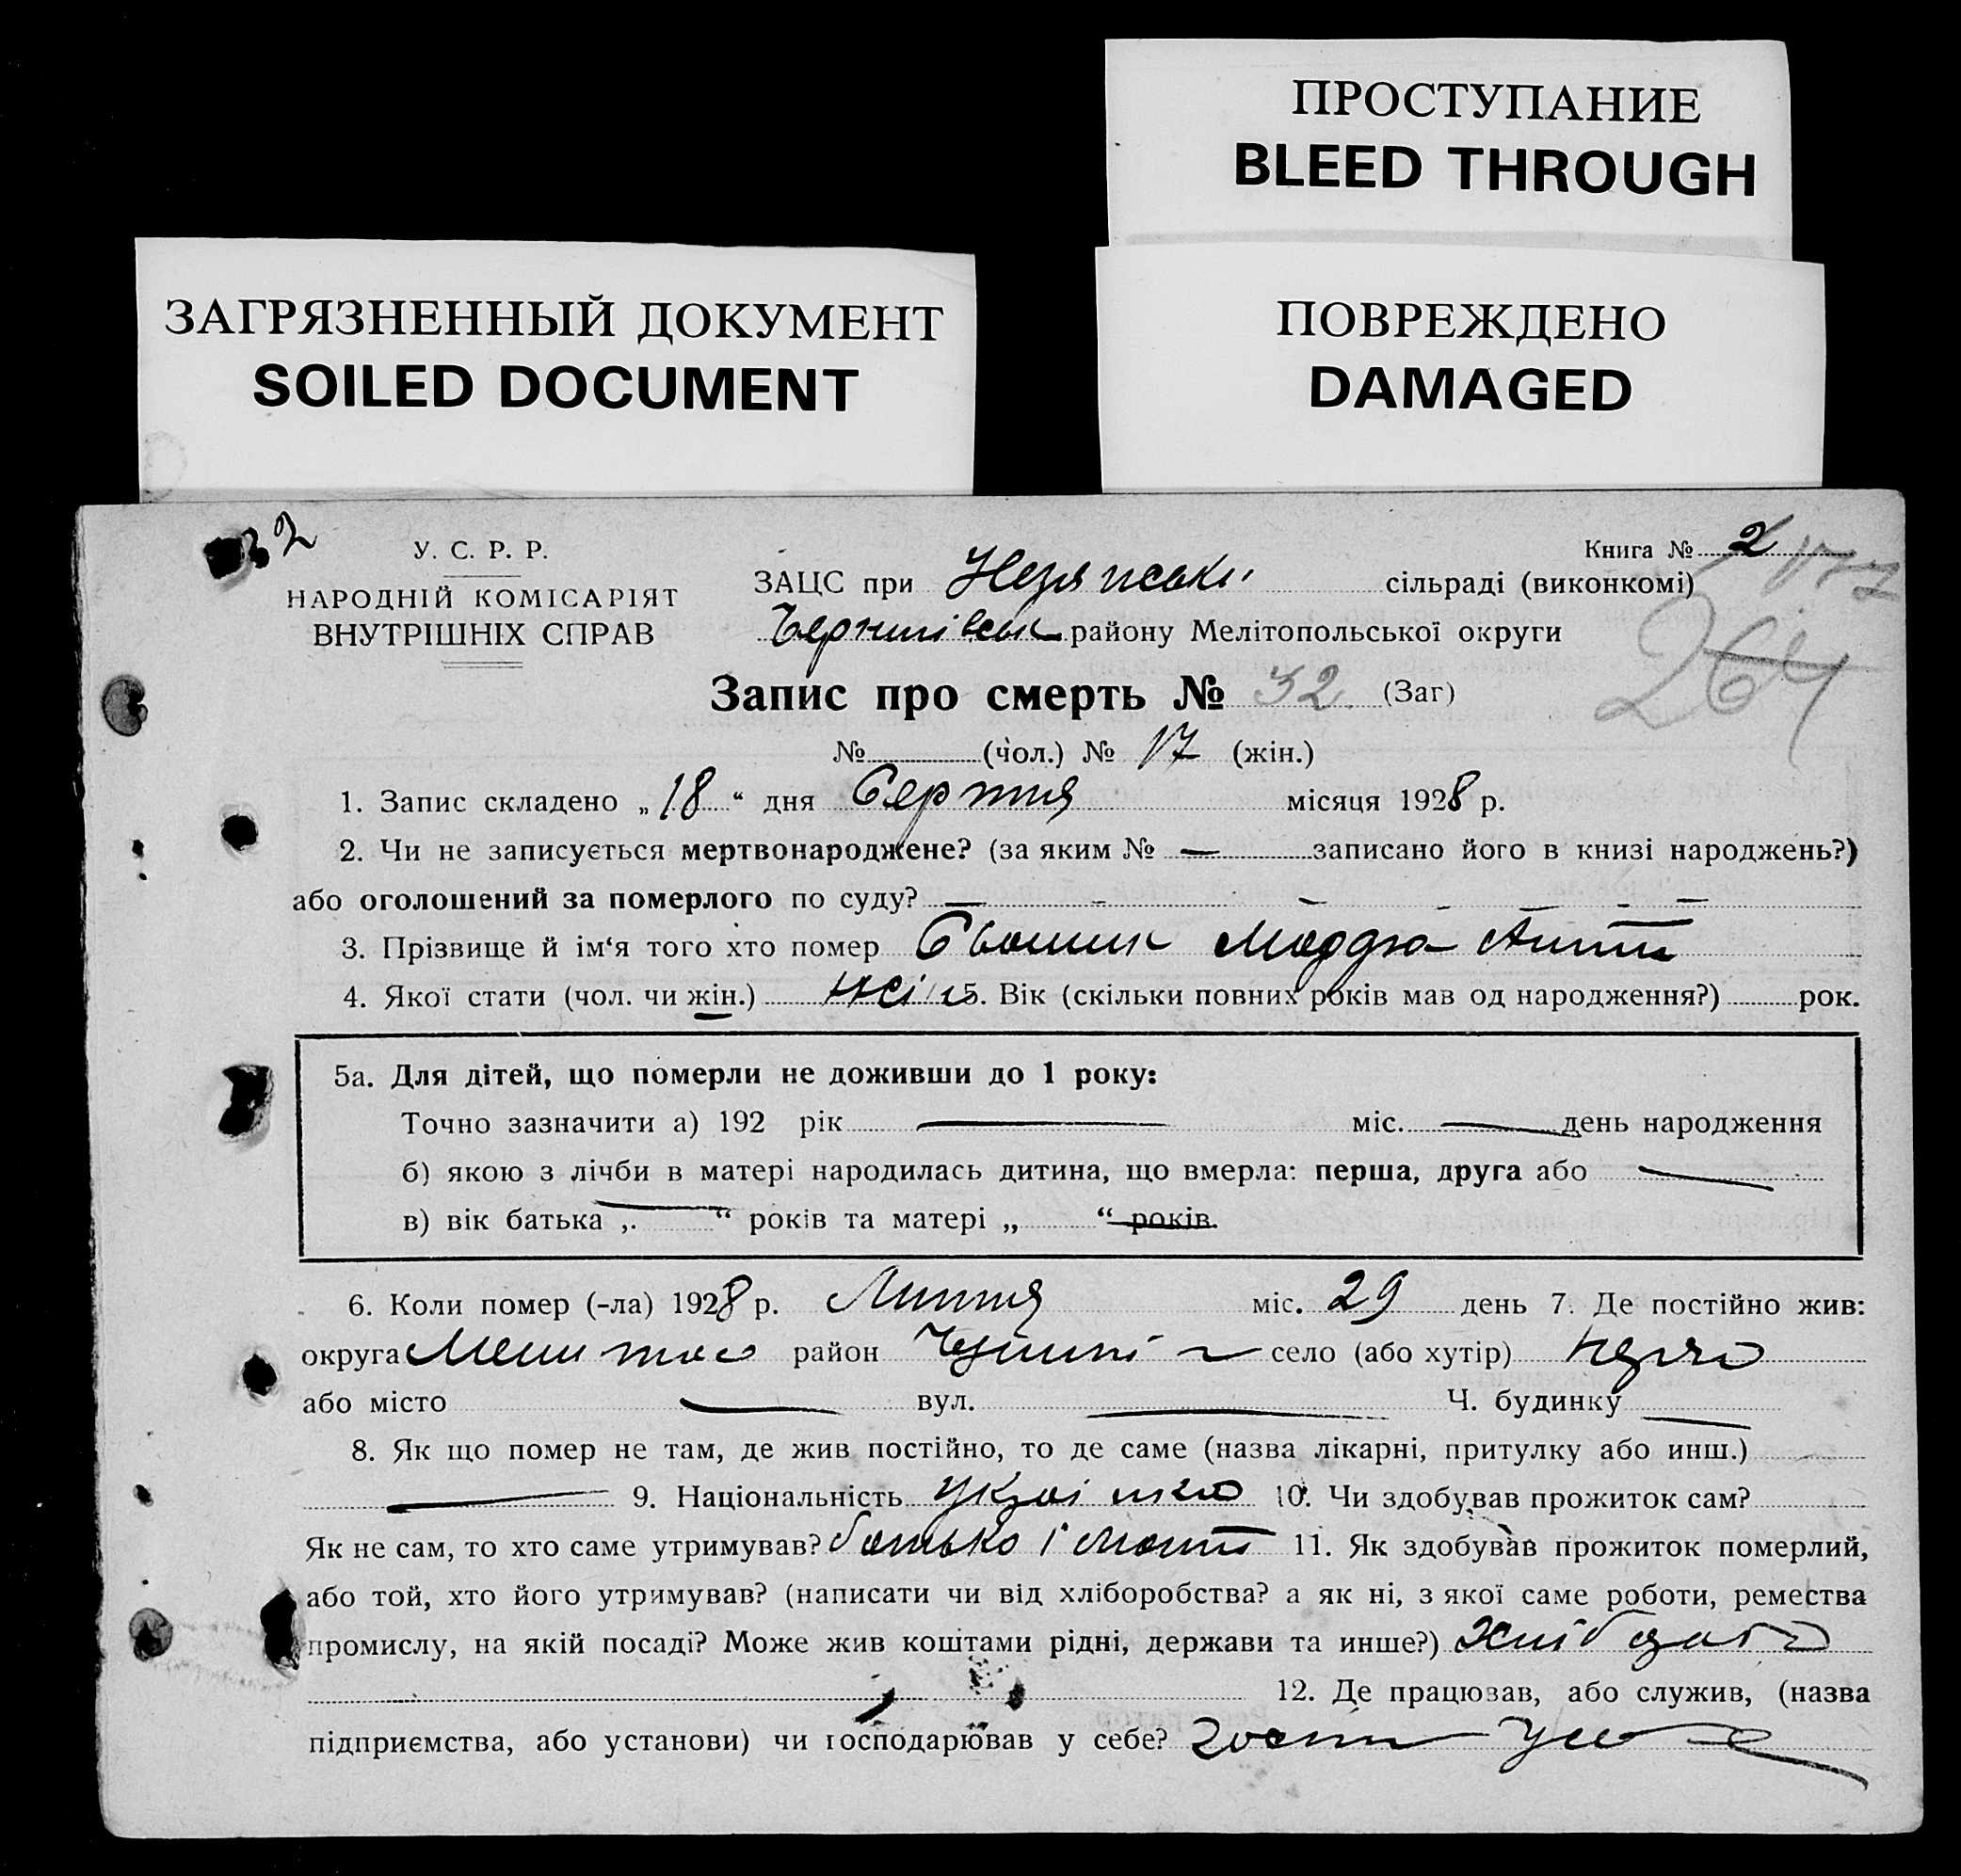 ПРОСТУПАНИЕ
BLEED THROUGH
ЗАГРЯЗНЕННЫЙ ДОКУМЕНТ
SOILED DOCUMENT
ПОВРЕЖДЕНО
DAMAGED
32
У. С. Р. Р.
НАРОДНІЙ КОМІСАРІЯТ
ВНУТРІШНІХ СПРАВ
Книга № 2
ЗАЦС при сільраді (виконкомі)
264
Чернигівськ району Мелітопольської округи
Запис про смерть № 32 (Заг)
№ (чол.) № 17 (жін.)
1. Запис складено „ 18 “ дня Серпня місяця 1928 р.
2. Чи не записується мертвонароджене? (за яким № — записано його в книзі народжень?)
або оголошений за померлого по суду? — - — - — -
3. Прізвище й ім‘я того хто помер
4. Якої стати (чол. чи жін.) жін 5. Вік (скільки повних років мав од народження?) рок.
5а. Для дітей, що померли не доживши до 1 року:
Точно зазначити а) 192 рік — міс. — день народження
б) якою з лічби в матері народилась дитина, що вмерла: перша, друга або —
в) вік батька „ — “ років та матері „ “ років.
6. Коли помер (-ла) 1928 р. Липня міс. 29 день 7. Де постійно жив:
округа район село (або хутір)
або місто — вул. — Ч. будинку —
8. Як що помер не там, де жив постійно, то де саме (назва лікарні, притулку або инш.)
— 9. Національність 10. Чи здобував прожиток сам?
Як не сам, то хто саме утримував? батько і мати 11. Як здобував прожиток померлий,
або той, хто його утримував? (написати чи від хліборобства? а як ні, з якої саме роботи, ремества
промислу, на якій посаді? Може жив коштами рідні, держави та инше?)
12. Де працював, або служив, (назва
підприємства, або установи) чи господарював у себе?